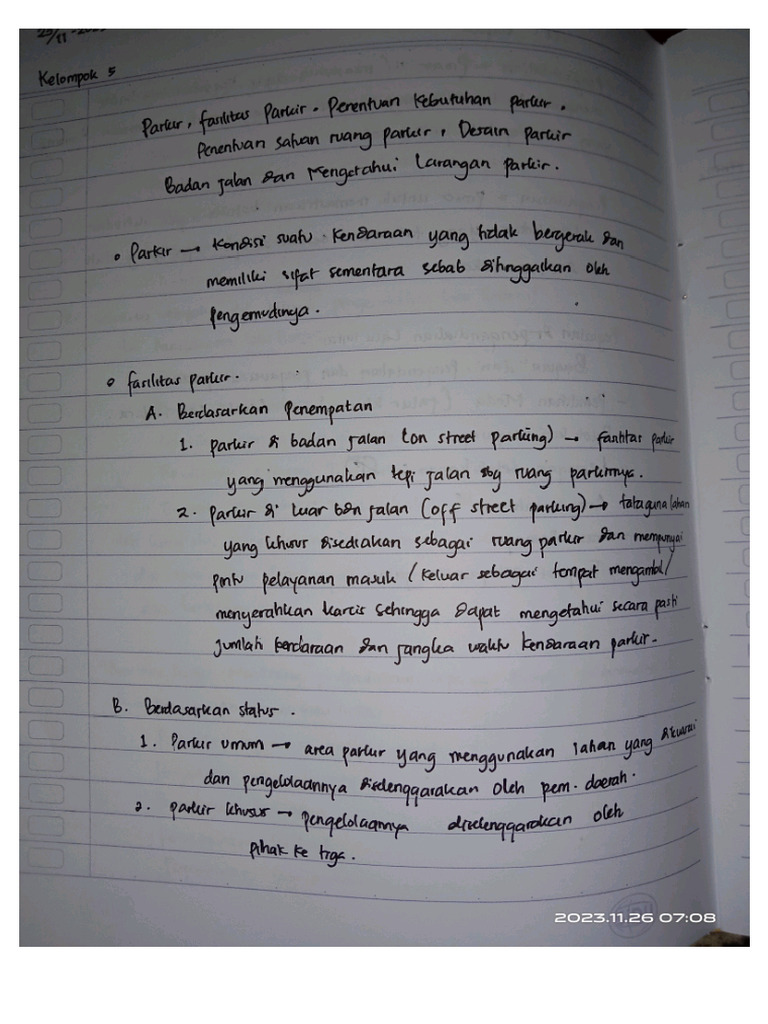 Kelompok 5
Parkir, fasilitas Parkir. Penentuan Kebutuhan parkir,
Penentuan satuan ruang parkir, Desain parkir
Badan jalan dan Mengetahui Larangan Parkir.
• Parkir → Kondisi suatu kendaraan yang tidak bergerak dan
memiliki sifat sementara sebab ditinggalkan oleh
pengemudinya.
• fasilitas parkir.
A. Berdasarkan Penempatan
1. parkir di badan jalan (on street parking) → fasilitas parkir
yang menggunakan tepi jalan sbg ruang parkirnya.
2. parkir di luar bdn jalan (off street parking) → tataguna lahan
yang khusus disediakan sebagai ruang parkir dan mempunyai
pintu pelayanan masuk / keluar sebagai tempat mengambil /
menyerahkan karcis sehingga dapat mengetahui secara pasti
jumlah kendaraan dan jangka waktu kendaraan parkir.
B. Berdasarkan status.
1. Parkir umum → area parkir yang menggunakan lahan yang dikuasai
dan pengelolaannya diselenggarakan oleh pem. daerah.
2. parkir khusus → pengelolaannya diselenggarakan oleh
pihak ke tiga.
2023.11.26 07:08